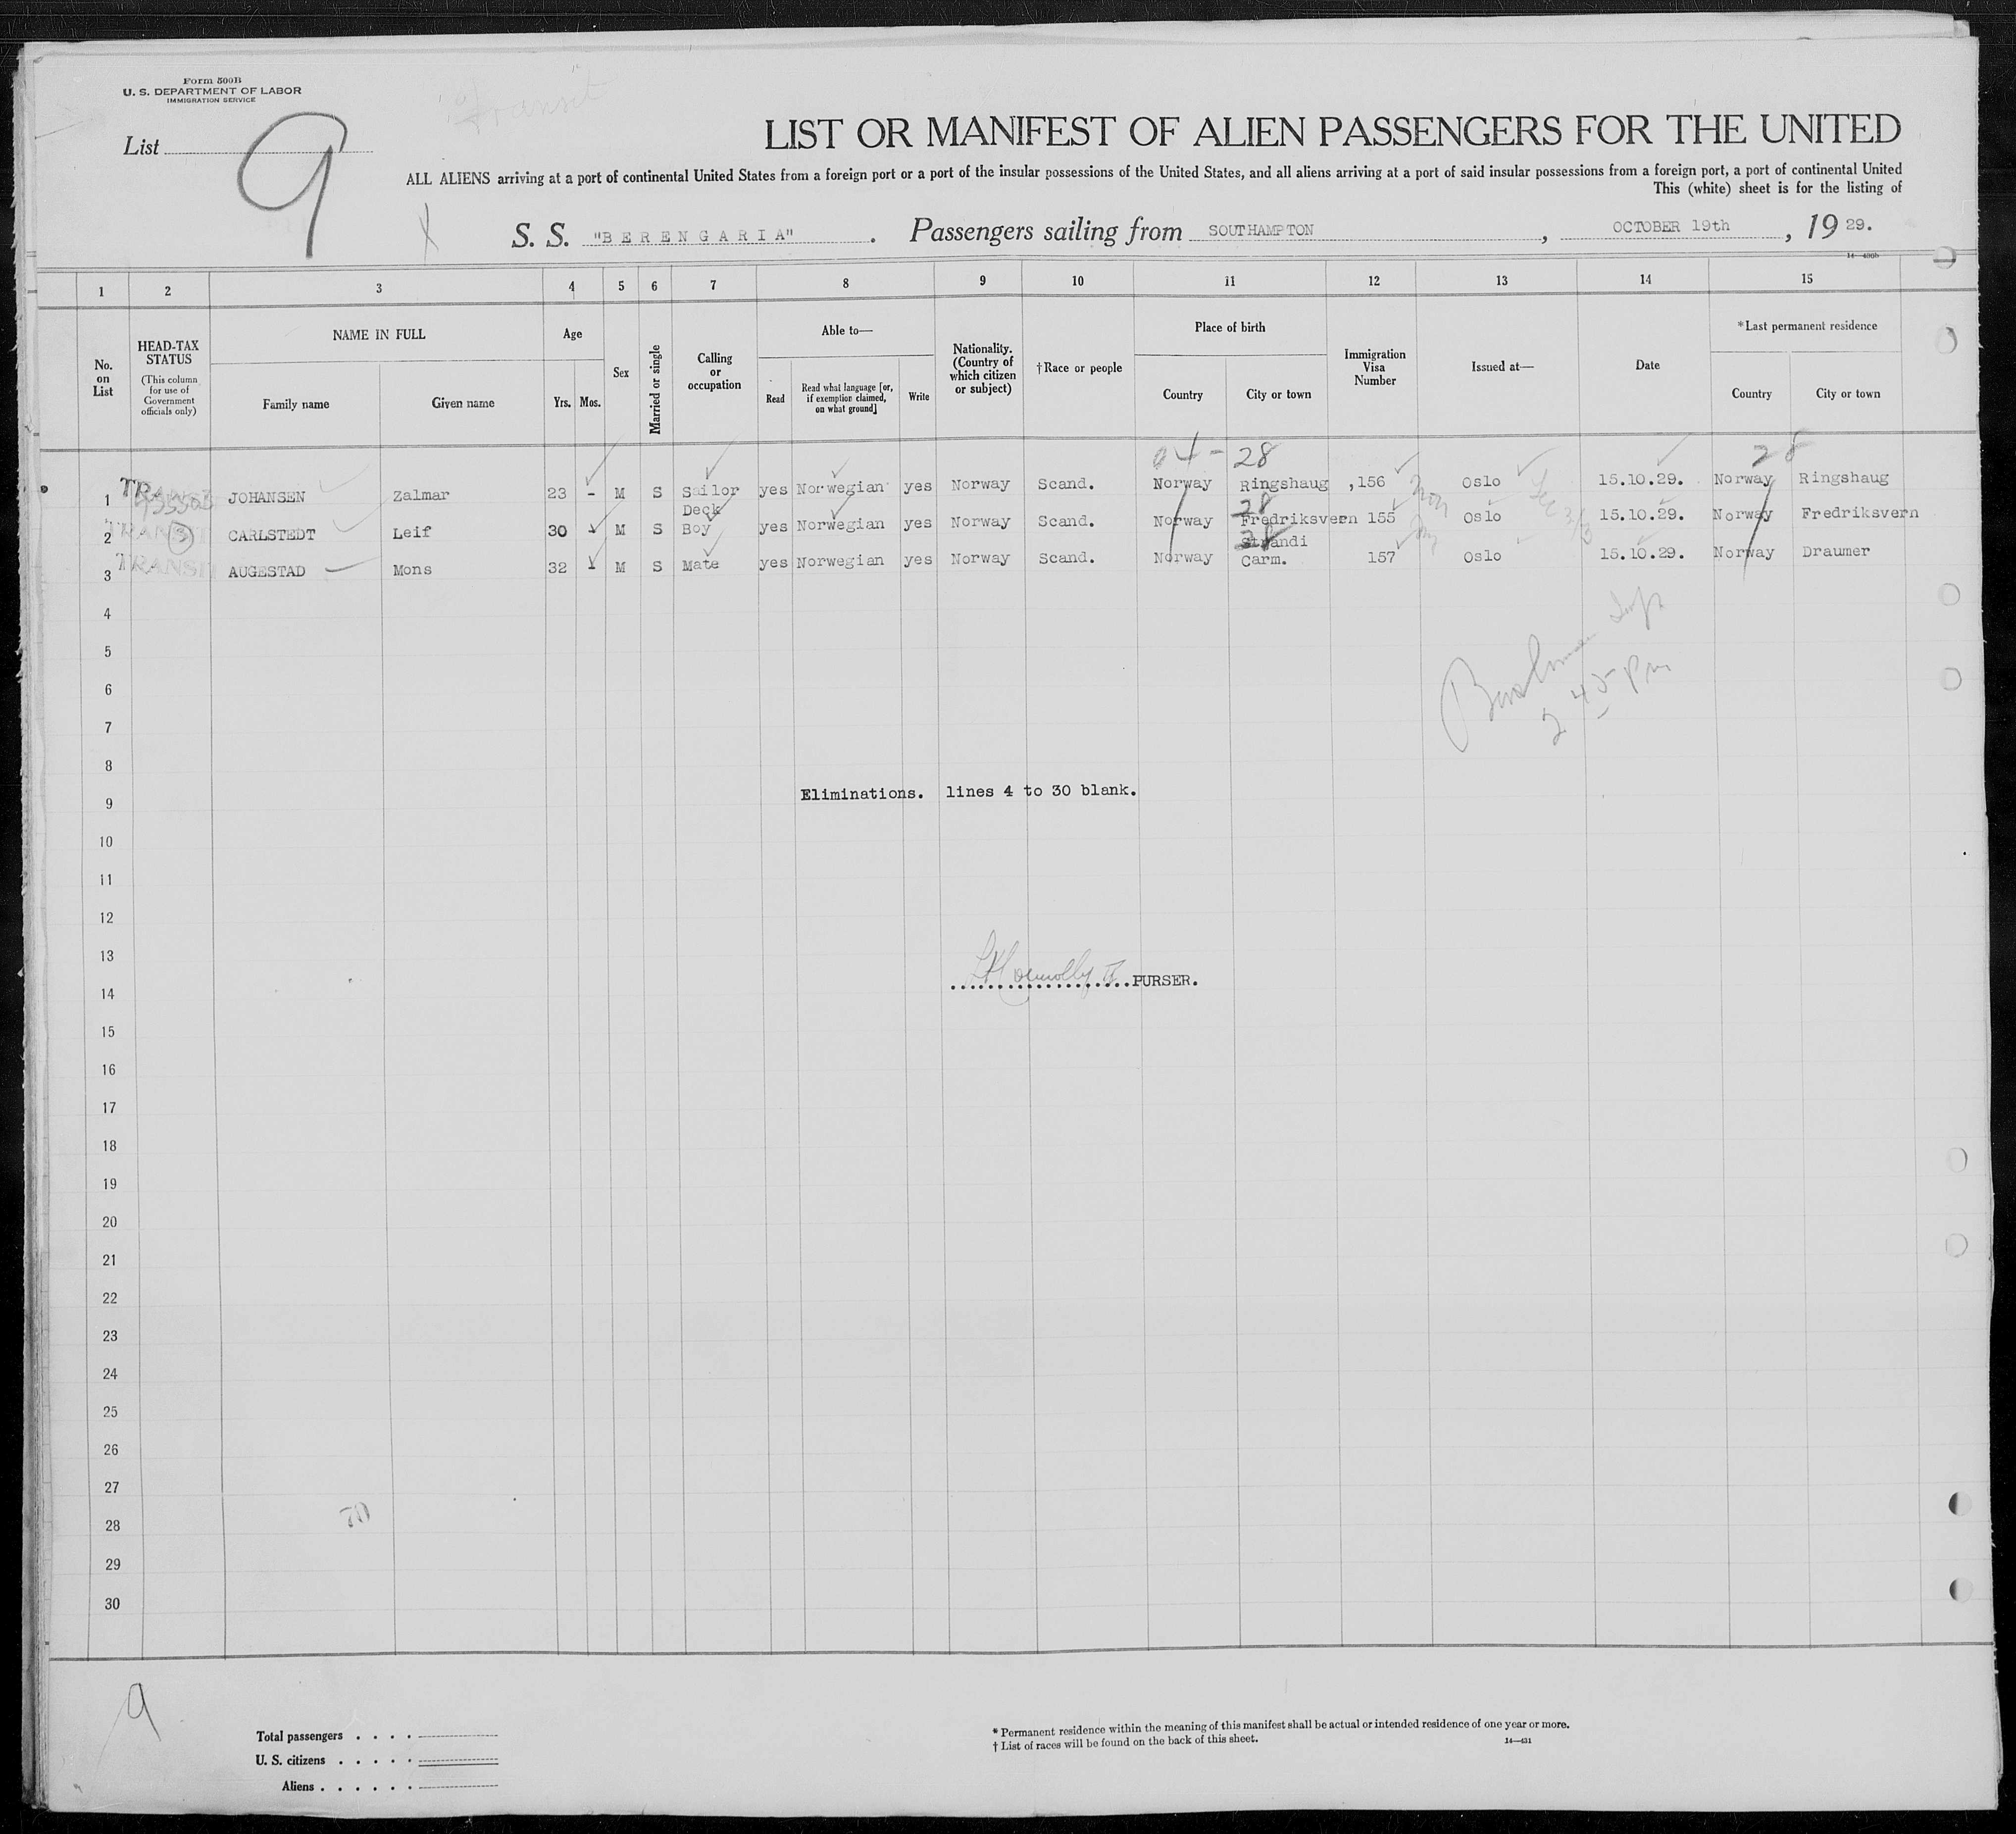 Form 500B
U. S. DEPARTMENT OF LABOR
IMMIGRATION SERVICE
"Transit"
List 9
LIST OR MANIFEST OF ALIEN PASSENGERS FOR THE UNITED
ALL ALIENS arriving at a port of continental United States from a foreign port or a port of the insular possessions of the United States, and all aliens arriving at a port of said insular possessions from a foreign port, a port of continental United
This (white) sheet is for the listing of
S. S. "BERENGARIA". Passengers sailing from SOUTHAMPTON, OCTOBER 19th, 1929.
1 2 3 4 5 6 7 8 9 10 11 12 13 14 15
No. on List
HEAD-TAX STATUS (This column for use of Government officials only)
NAME IN FULL
Family name Given name
Age
Yrs. Mos.
Sex
Married or single
Calling or occupation
Able to—
Read Read what language [or, if exemption claimed, on what ground] Write
Nationality. (Country of which citizen or subject)
†Race or people
Place of birth
Country City or town
Immigration Visa Number
Issued at—
Date
*Last permanent residence
Country City or town
04-28 28
1 JOHANSEN Zalmar 23 - M S Sailor yes Norwegian yes Norway Scand. Norway Ringshaug ,156 Oslo 15.10.29. Norway Ringshaug
28
2 TRANSIT CARLSTEDT Leif 30 - M S Deck Boy yes Norwegian yes Norway Scand. Norway Fredriksvern 155 Oslo 15.10.29. Norway Fredriksvern
28
3 TRANSIT AUGESTAD Mons 32 - M S Mate yes Norwegian yes Norway Scand. Norway Strandi Carm. 157 Oslo 15.10.29. Norway Draumer
4
5
6
7
2 45 pm
8
9 Eliminations. lines 4 to 30 blank.
10
11
12
13
14 PURSER.
15
16
17
18
19
20
21
22
23
24
25
26
27
28 70
29
30
9
Total passengers
U. S. citizens
Aliens
* Permanent residence within the meaning of this manifest shall be actual or intended residence of one year or more.
† List of races will be found on the back of this sheet.
14—431